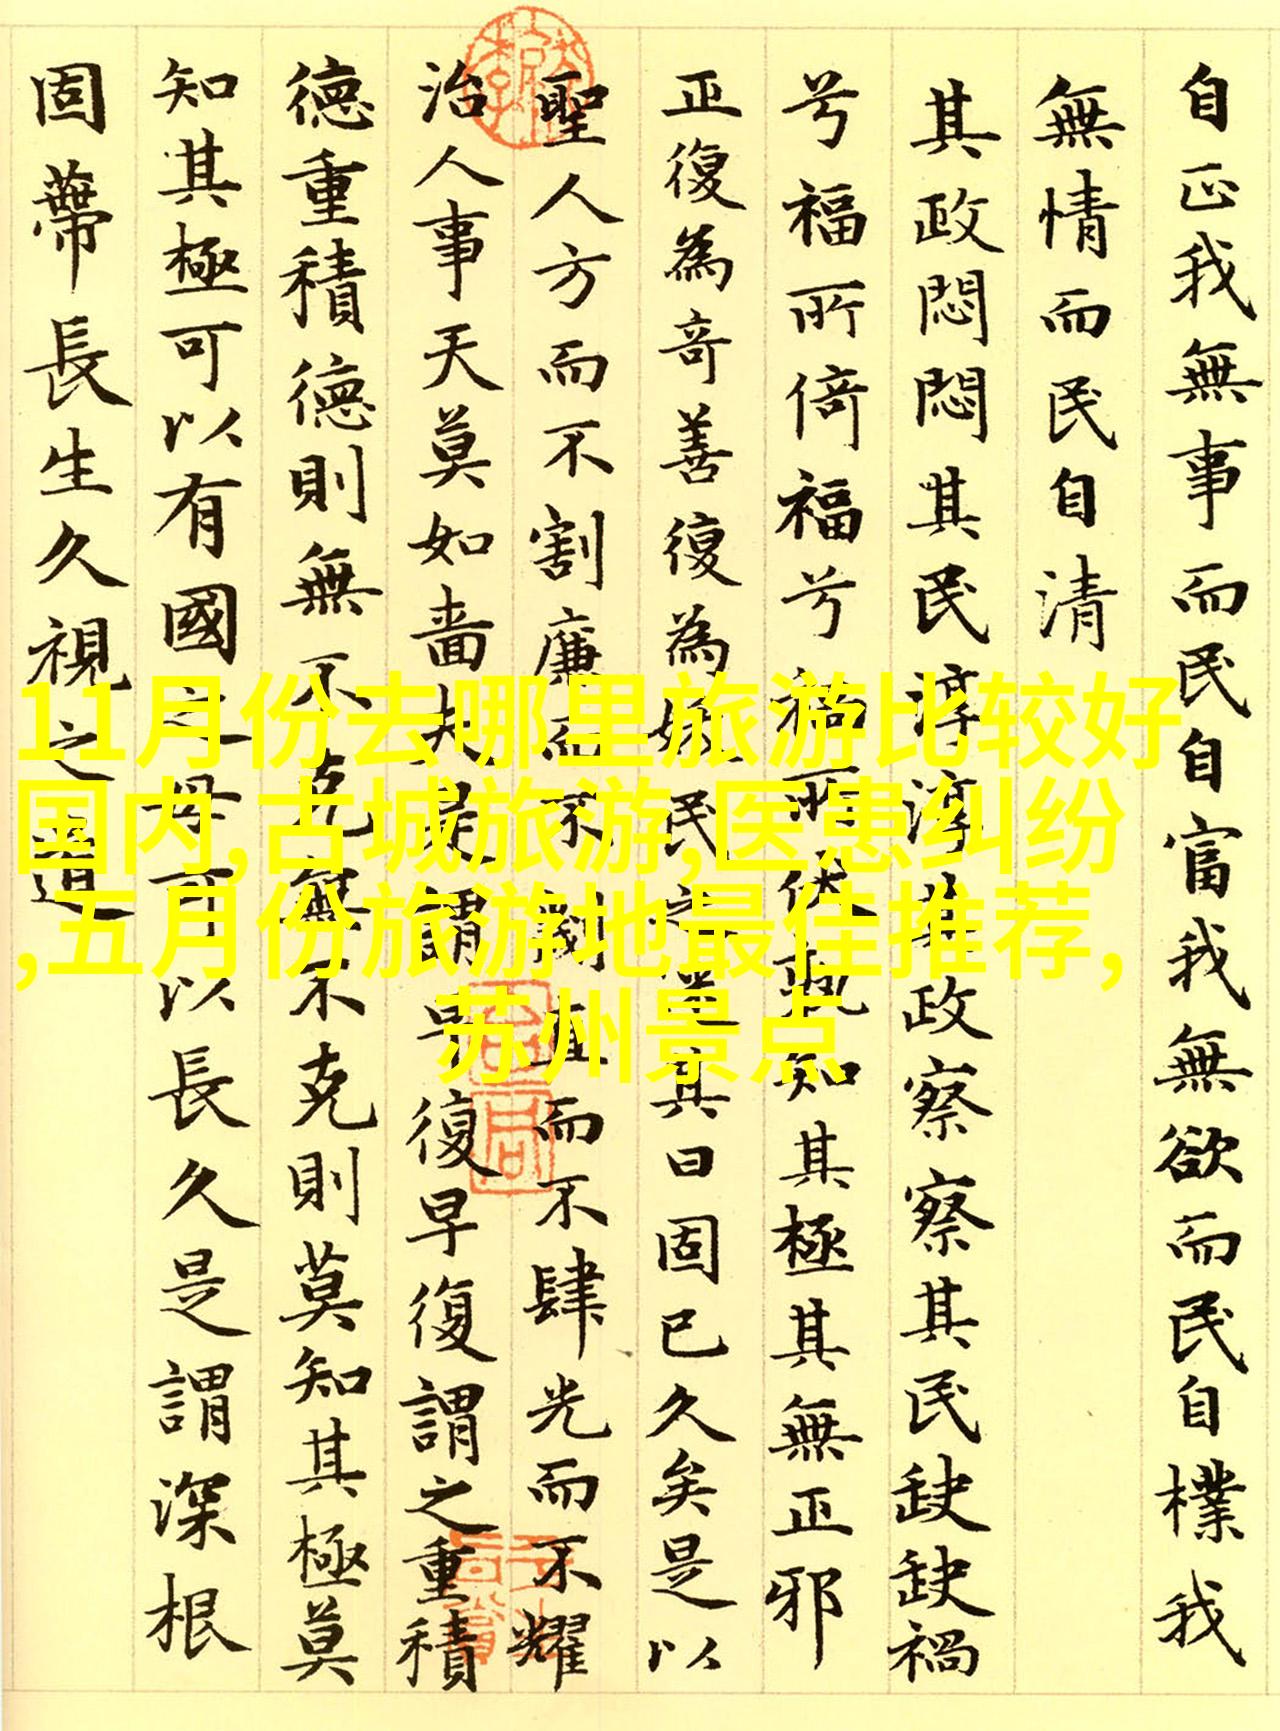 自正我無事而民自富我無欲而民自樸我
無情而民自清
其政悶悶其民淳淳其政察察其民缺缺禍
兮福所倚福兮禍所伏孰知其極其無正邪
正復為奇善復為妖民之迷其日固已久矣是以
聖人方而不割廉而不劌直而不肆光而不耀
治人事天莫如嗇夫是謂早復早復謂之重積
德重積德則無不克無不克則莫知其極莫
知其極可以有國之母可以長久是謂深根
固蔕長生久視之道
11月份去哪里旅游比较好
国内,古城旅游,医患纠纷
,五月份旅游地最佳推荐,
苏州景点